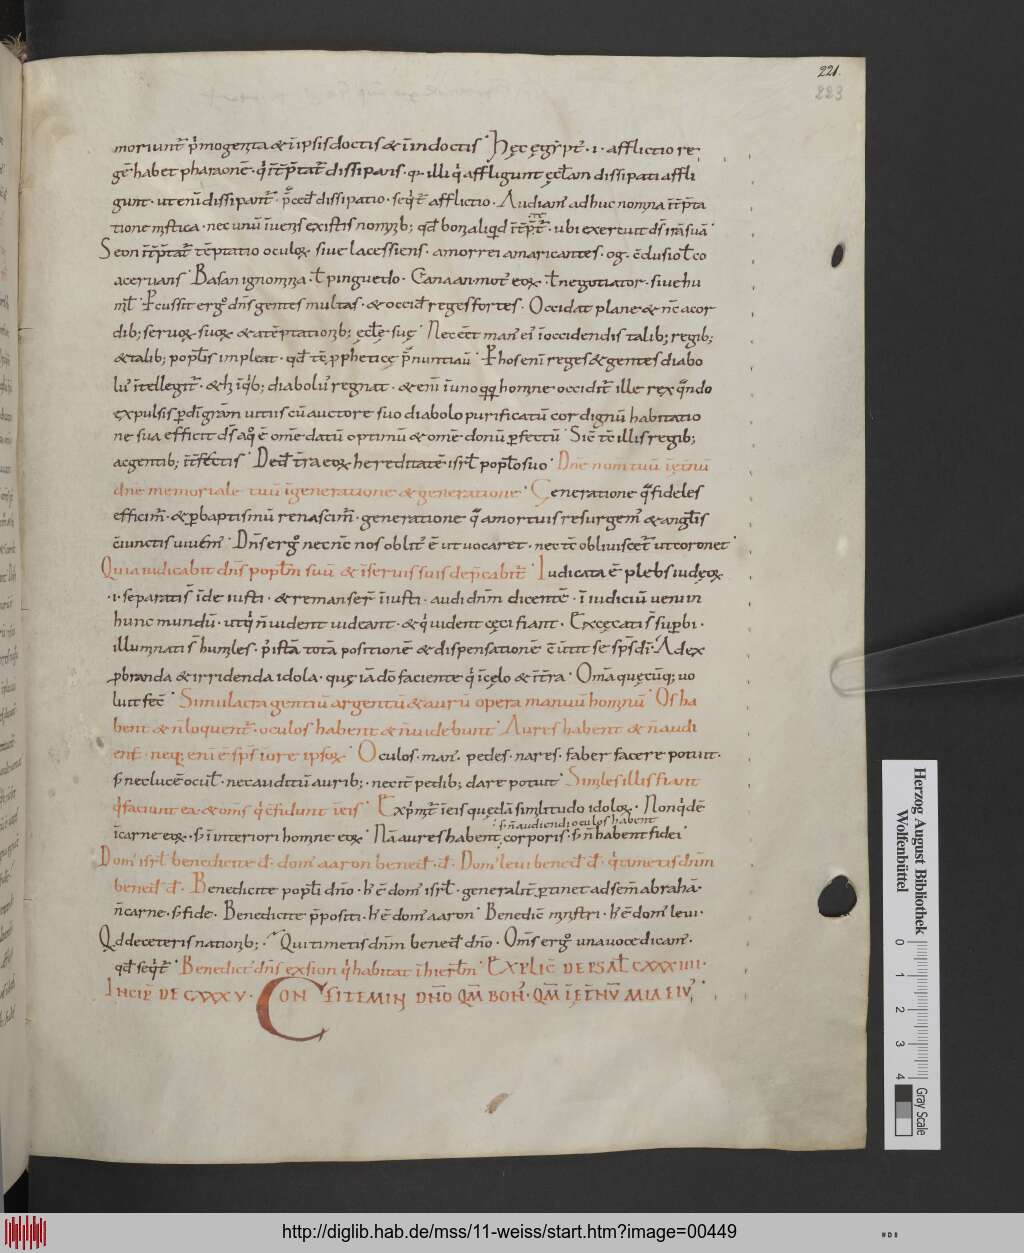 221.
223
moriunt̄ p̄mogenita & īipsis doctis & īindoctis · Hęc ęgẏpt᾽ · i · afflictio re
gē habet pharaonē · q̇ īt̄p̄tat᾽ dissipans · q· illi q̇ affligunt ęccl̄am dissipati affli
gunt · ut enī dissipant᾽ · p̄ced̄ dissipatio · seq̇t᾽ afflictio · Audiam᾽ adhuc nomina īt̄p̄ta
tione mistica · nec unū īuenis existis nominib; qd̄ bonum aliqid īt̄p̄t᾽ · ubi exercuit d̄s irā suā ·
Seon īt̄p̄tat᾽ tēptatio oculoꝝ siue lacessiens · amorrei amaricantes · og · c̄clusio ł co
aceruans · Basan ignominia · ł pinguedo · Canaan mot᾽ eoꝝ · ł negotiator · siue hu
mil᾽ · Pcussit erg̊ dn̄s gentes multas · & occid̄ reges fortes · Occidat plane & n̄c a cor
dib; seruoꝝ suoꝝ & a tēptationib; ęccl̄ę suę · Nec ēēt man᾽ ei᾽ ī occidendis talib; regib;
& talib; popl̄is impleat · qd̄ tc̄ p̱pheticę p̄nuntiaū · P hos enī reges & gentes diabo
lu᾽ ītellegit᾽ · & hi īqib; diabolu᾽ regnat · & enī ī uno qq homine occidit᾽ ille rex q̄ndo
expulsis p̱digr̄am uitiis cū auctore suo diabolo purificatū cor dignū habitatio
ne sua efficit d̄s a q̊ ē om̄e datū optimū & om̄e donū p̱fectū · Sic̄ tc̄ illis regib;
ac gentib; īt̄fectis · Ded̄ t̄ra eoꝝ hereditatē isrl̄ popl̄o suo · Dn̄e nom̄ tuū ī ęt̄nū
dn̄e memoriale tuū ī generatione & generatione · Generatione q̄ fideles
efficim᾽ · & p̱ baptismū renascim᾽ · generatione q̄ a mortuis resurgem᾽ & angl̄is
c̄iunctis uiuem᾽ · Dn̄s erg̊ nec n̄c nos oblit᾽ ē ut uocaret · nec tc̄ obliuiscet᾽ ut coronet ·
Quia iudicabit dn̄s popl̄m suū & ī seruis suis dep̄cabit᾽ · Iudicata ē plebs iudęoꝝ
· i · separatis īde iusti · & remanser̄ īiusti · audi dn̄m dicentē · ī iudiciū ueni in
hunc mundū · ut q̇ n̄ uident uideant · & q̇ uident cęci fiant · Excęcatis sup̱bi ·
illuminatis humiles · p̄ ista tota positionē & dispensationē c̄uertit se sps̄ di᾽ · Ad ex
p̱branda & irridenda idola · quę iā dō faciente q̇ ī cęlo & ī t̄ra · Om̄a quęcūq; uo
luit fec̄ · Simulacra gentiū argentū & aurū opera manuū hominū · Os ha
bent & n̄ loquent᾽ · oculos habent & n̄ uidebunt · Aures habent & n̄ audi
ent · neq; enī ē sps̄ ī ore ipsoꝝ · Oculos · man᾽ · pedes · nares · faber facere potuit ·
s̄ nec lucē ocul᾽ · nec auditū aurib; · nec itē pedib; dare potuit · Similes illis fiant
q̇ faciunt ea & om̄s q̇ c̄fidunt ī eis · Exp̄mit᾽ ī eis quędā similitudo idoloꝝ · Non q̇dē
ī carne eoꝝ · s̄ ī interiori homine eoꝝ · Nā aures habent corporis · s̄ n̄ habent fidei ·
· s̄ n̄ audiendi oculos habent
Dom᾽ isrl̄ benedicite d̄o · dom᾽ aaron bened̄ · d̄o · Dom᾽ leui bened̄ d̄o · q̇ timetis dn̄m
bened̄ d̄o · Benedicite popl̄i dn̄o · h᾽ ē dom᾽ isrl̄ · generalit᾽ p̱tinet ad sem̄ abrahā ·
n̄ carne · s̄ fide · Benedicite p̄positi · h᾽ ē dom᾽ aaron · Benedic̄ ministri · h᾽ ē dom᾽ leui ·
Qd de ceteris nationib; · Qui timetis dn̄m bened̄ dn̄o · Om̄s erg̊ una uoce dicam᾽ ·
qd̄ seq̇t᾽ · Benedict᾽ dn̄s ex sion q̇ habitat ī hierl̄m · EXPLIC̄ DE PSAL̄ CXXXIIII ·
INCIP̄ DE CXXXV · CONFITEMINI DN̄O QM̄ BON᾽ · QM̄ Ī ĘT̄NŪ MIA EIU᾽,
Herzog August Bibliothek
Wolfenbüttel
0 1 2 3 4
Gray Scale
http://diglib.hab.de/mss/11-weiss/start.htm?image=00449